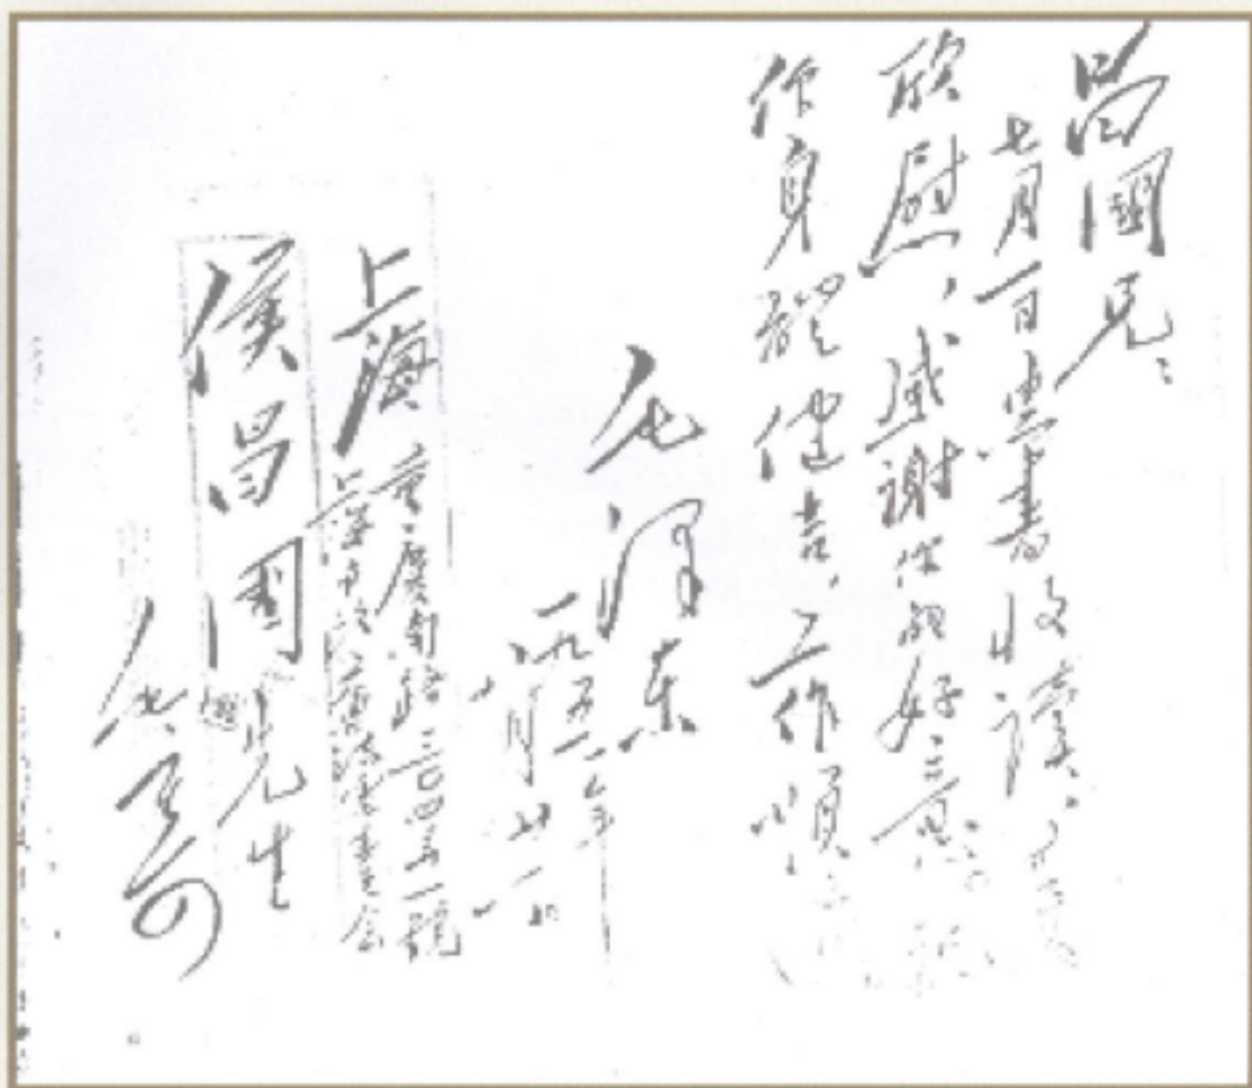 昌國兄：
七月一日惠書收讀，
欣慰，感謝你的好意。祝
你身體健吉，工作順
毛澤東
一九五一年
八月廿一日
上海 重慶南路三〇四弄一號
上海市
侯昌國先生
毛寄